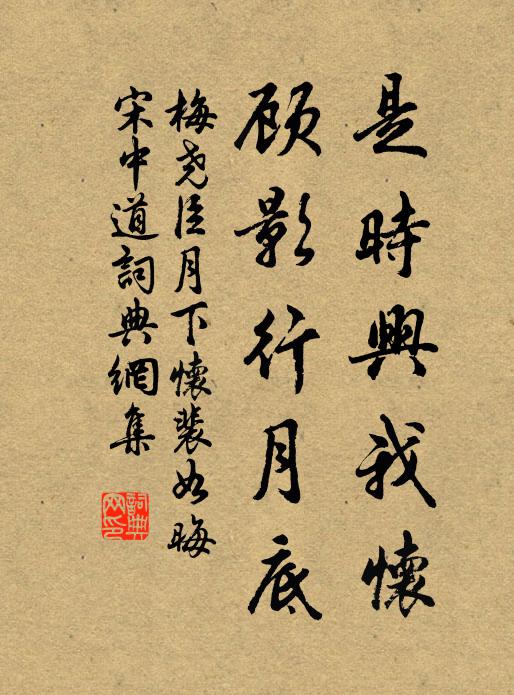 是時興我懷
顧影行月底
梅堯臣月下懷裴如晦
宋中道詞典網集
詞典網印